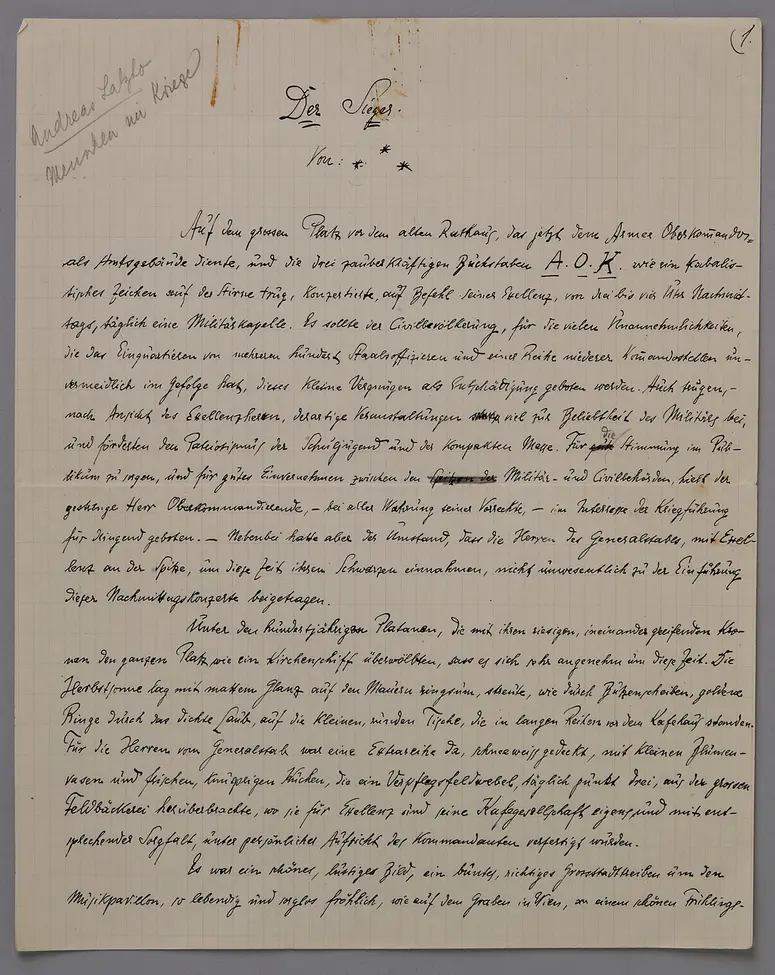 (1.
Andreas Latzko
Menschen im Kriege
Der Sieger.
Von: * * *
Auf dem grossen Platz vor dem alten Rathaus, das jetzt dem Armee Oberkomando,
als Amtsgebäude diente, und die drei zauberkräftigen Buchstaben A.O.K. wie ein Kabalis-
tisches Zeichen auf der Stirne trug, konzertierte, auf Befehl seiner Exellenz, von drei bis vier Uhr Nachmit-
tags, täglich eine Militärkapelle. Es sollte der Civilbevölkerung, für die vielen Unannehmlichkeiten,
die das Einquartieren von mehreren hundert Stabsoffizieren und einer Reihe niederer Komandostellen un-
vermeidlich im Gefolge hat, dieses kleine Vergnügen als Entschädigung geboten werden. Auch trugen, -
nach Ansicht des Exellenzherrn, derartige Veranstaltungen viel zur Beliebtheit des Militärs bei,
und förderten den Patriotismus der Schuljugend und der kompakten Masse. Für die Stimmung im Pub-
likum zu sorgen, und für gutes Einvernehmen zwischen den Spitzen der Militär- und Civilbehörden, hielt der
gestrenge Herr Oberkommandierende, - bei aller Wahrung seiner Vorrechte, - im Interesse der Kriegführung
für dringend geboten. - Nebenbei hatte aber der Umstand, dass die Herren des Generalstabes, mit Exel-
lenz an der Spitze, um diese Zeit ihren Schwarzen einnahmen, nicht unwesentlich zu der Einführung
dieser Nachmittagskonzerte beigetragen.
Unter den hundertjährigen Platanen, die mit ihren riesigen, ineinander greifenden Kro-
nen den ganzen Platz wie ein Kirchenschiff überwölbten, sass es sich sehr angenehm um diese Zeit. Die
Herbstsonne lag mit mattem Glanz auf den Mauern ringsum, streute, wie durch Butzenscheiben, goldene
Ringe durch das dichte Laub, auf die kleinen, runden Tische, die in langen Reihen vor dem Kafehaus standen.
Für die Herren vom Generalstab war eine Extrareihe da, schneeweiss gedeckt, mit kleinen Blumen-
vasen und frischen, knusprigen Kuchen, die ein Verpflegsfeldwebel, täglich punkt drei, aus der grossen
Feldbäckerei herüberbrachte, wo sie für Exellenz und seine Kafegesellschaft eigens, und mit ent-
sprechender Sorgfalt, unter persönlicher Aufsicht des Kommandanten verfertigt wurden.
Es war ein schönes, lustiges Bild, ein buntes, richtiges Grossstadttreiben um den
Musikpavillon, so lebendig und sorglos fröhlich, wie auf dem Graben in Wien, an einem schönen Frühlings-